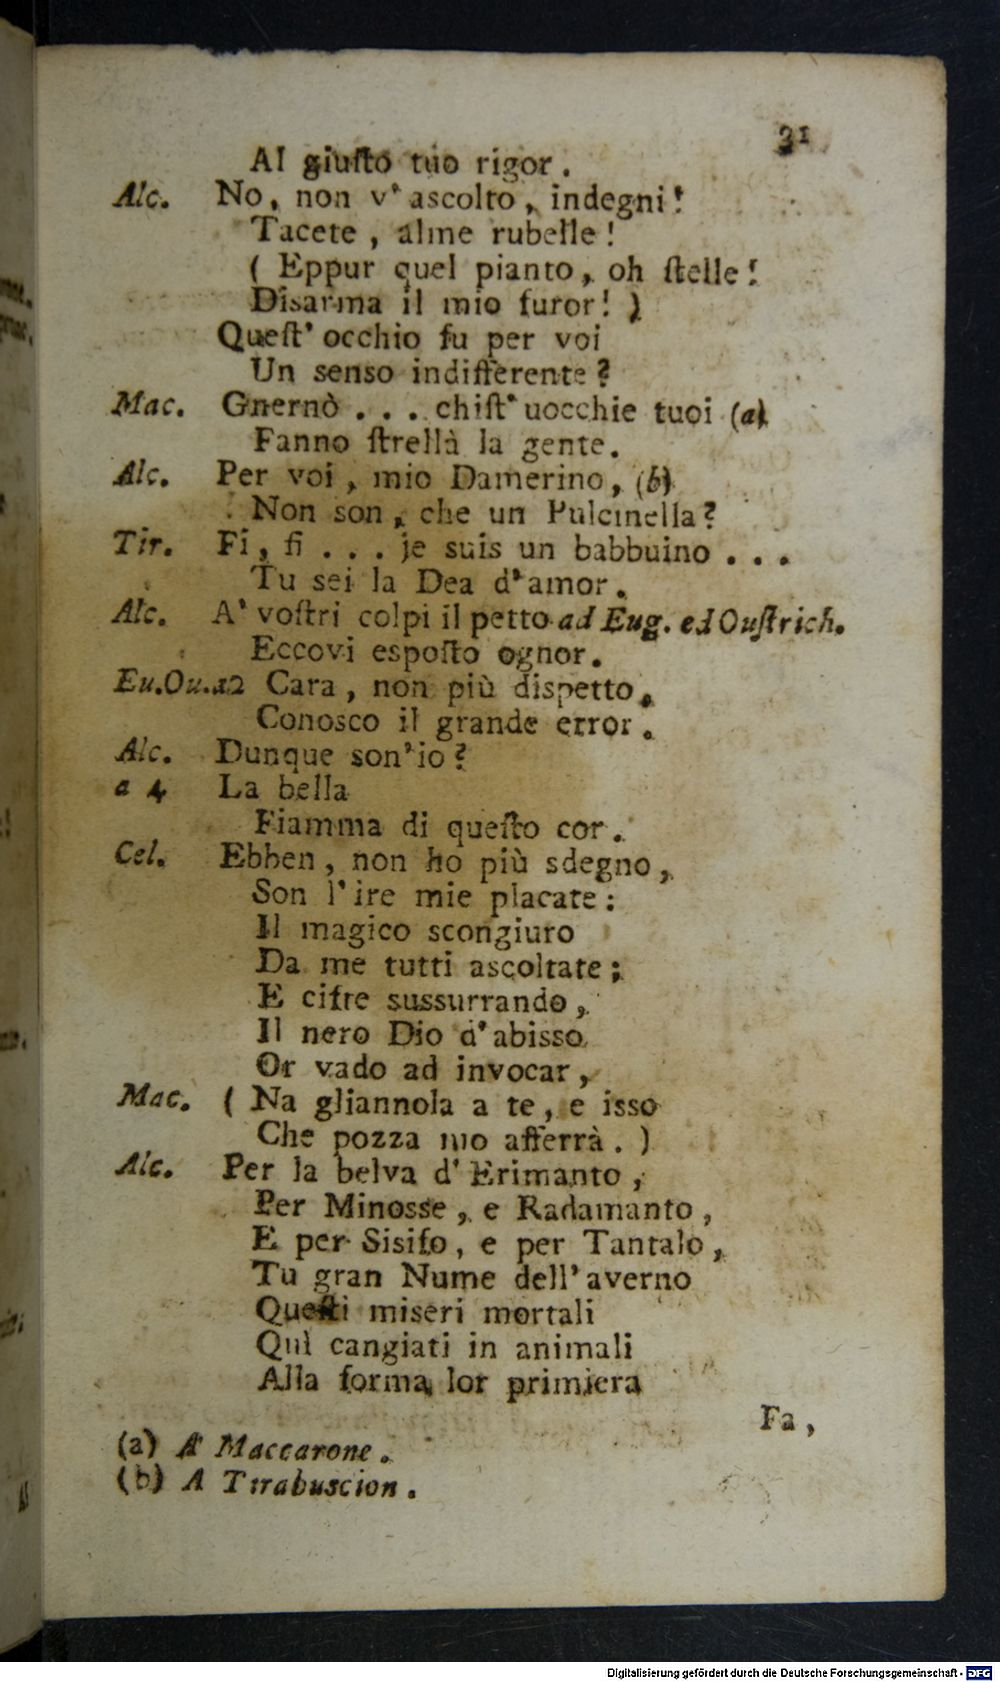 31
Al giuſto tuo rigor.
Alc. No, non v' ascolto, indegni!
Tacete, alme rubelle!
( Eppur quel pianto, oh ſtelle!
Disarma il mio furor! )
Queſt' occhio fu per voi
Un senso indifferente?
Mac. Gnernò . . . chiſt' uocchie tuoi (a)
Fanno ſtrellà la gente.
Alc. Per voi, mio Damerino, (b)
Non son, che un Pulcinella?
Tir. Fi, fi . . . je suis un babbuino . . .
Tu sei la Dea d'amor.
Alc. A' voſtri colpi il petto ad Eug. ed Ouſtrich.
Eccovi espoſto ognor.
Eu.Ou.a2 Cara, non più dispetto,
Conosco il grande error.
Alc. Dunque son'io?
a 4 La bella
Fiamma di queſto cor.
Cel. Ebben, non ho più sdegno,
Son l'ire mie placate:
Il magico scongiuro
Da me tutti ascoltate;
E cifre sussurrando,
Il nero Dio d'abisso
Or vado ad invocar,
Mac. ( Na gliannola a te, e isso
Che pozza mo afferrà. )
Alc. Per la belva d' Erimanto,
Per Minosse, e Radamanto,
E per Sisifo, e per Tantalo,
Tu gran Nume dell'averno
Queſti miseri mortali
Quì cangiati in animali
Alla forma lor primiera
Fa,
(a) A Maccarone.
(b) A Tirabuscion.
Digitalisierung gefördert durch die Deutsche Forschungsgemeinschaft - DFG